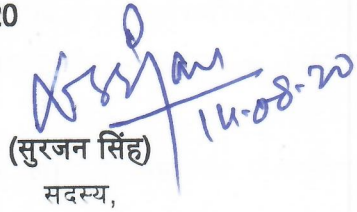 20
14-08-20
(सुरजन सिंह)
सदस्य,